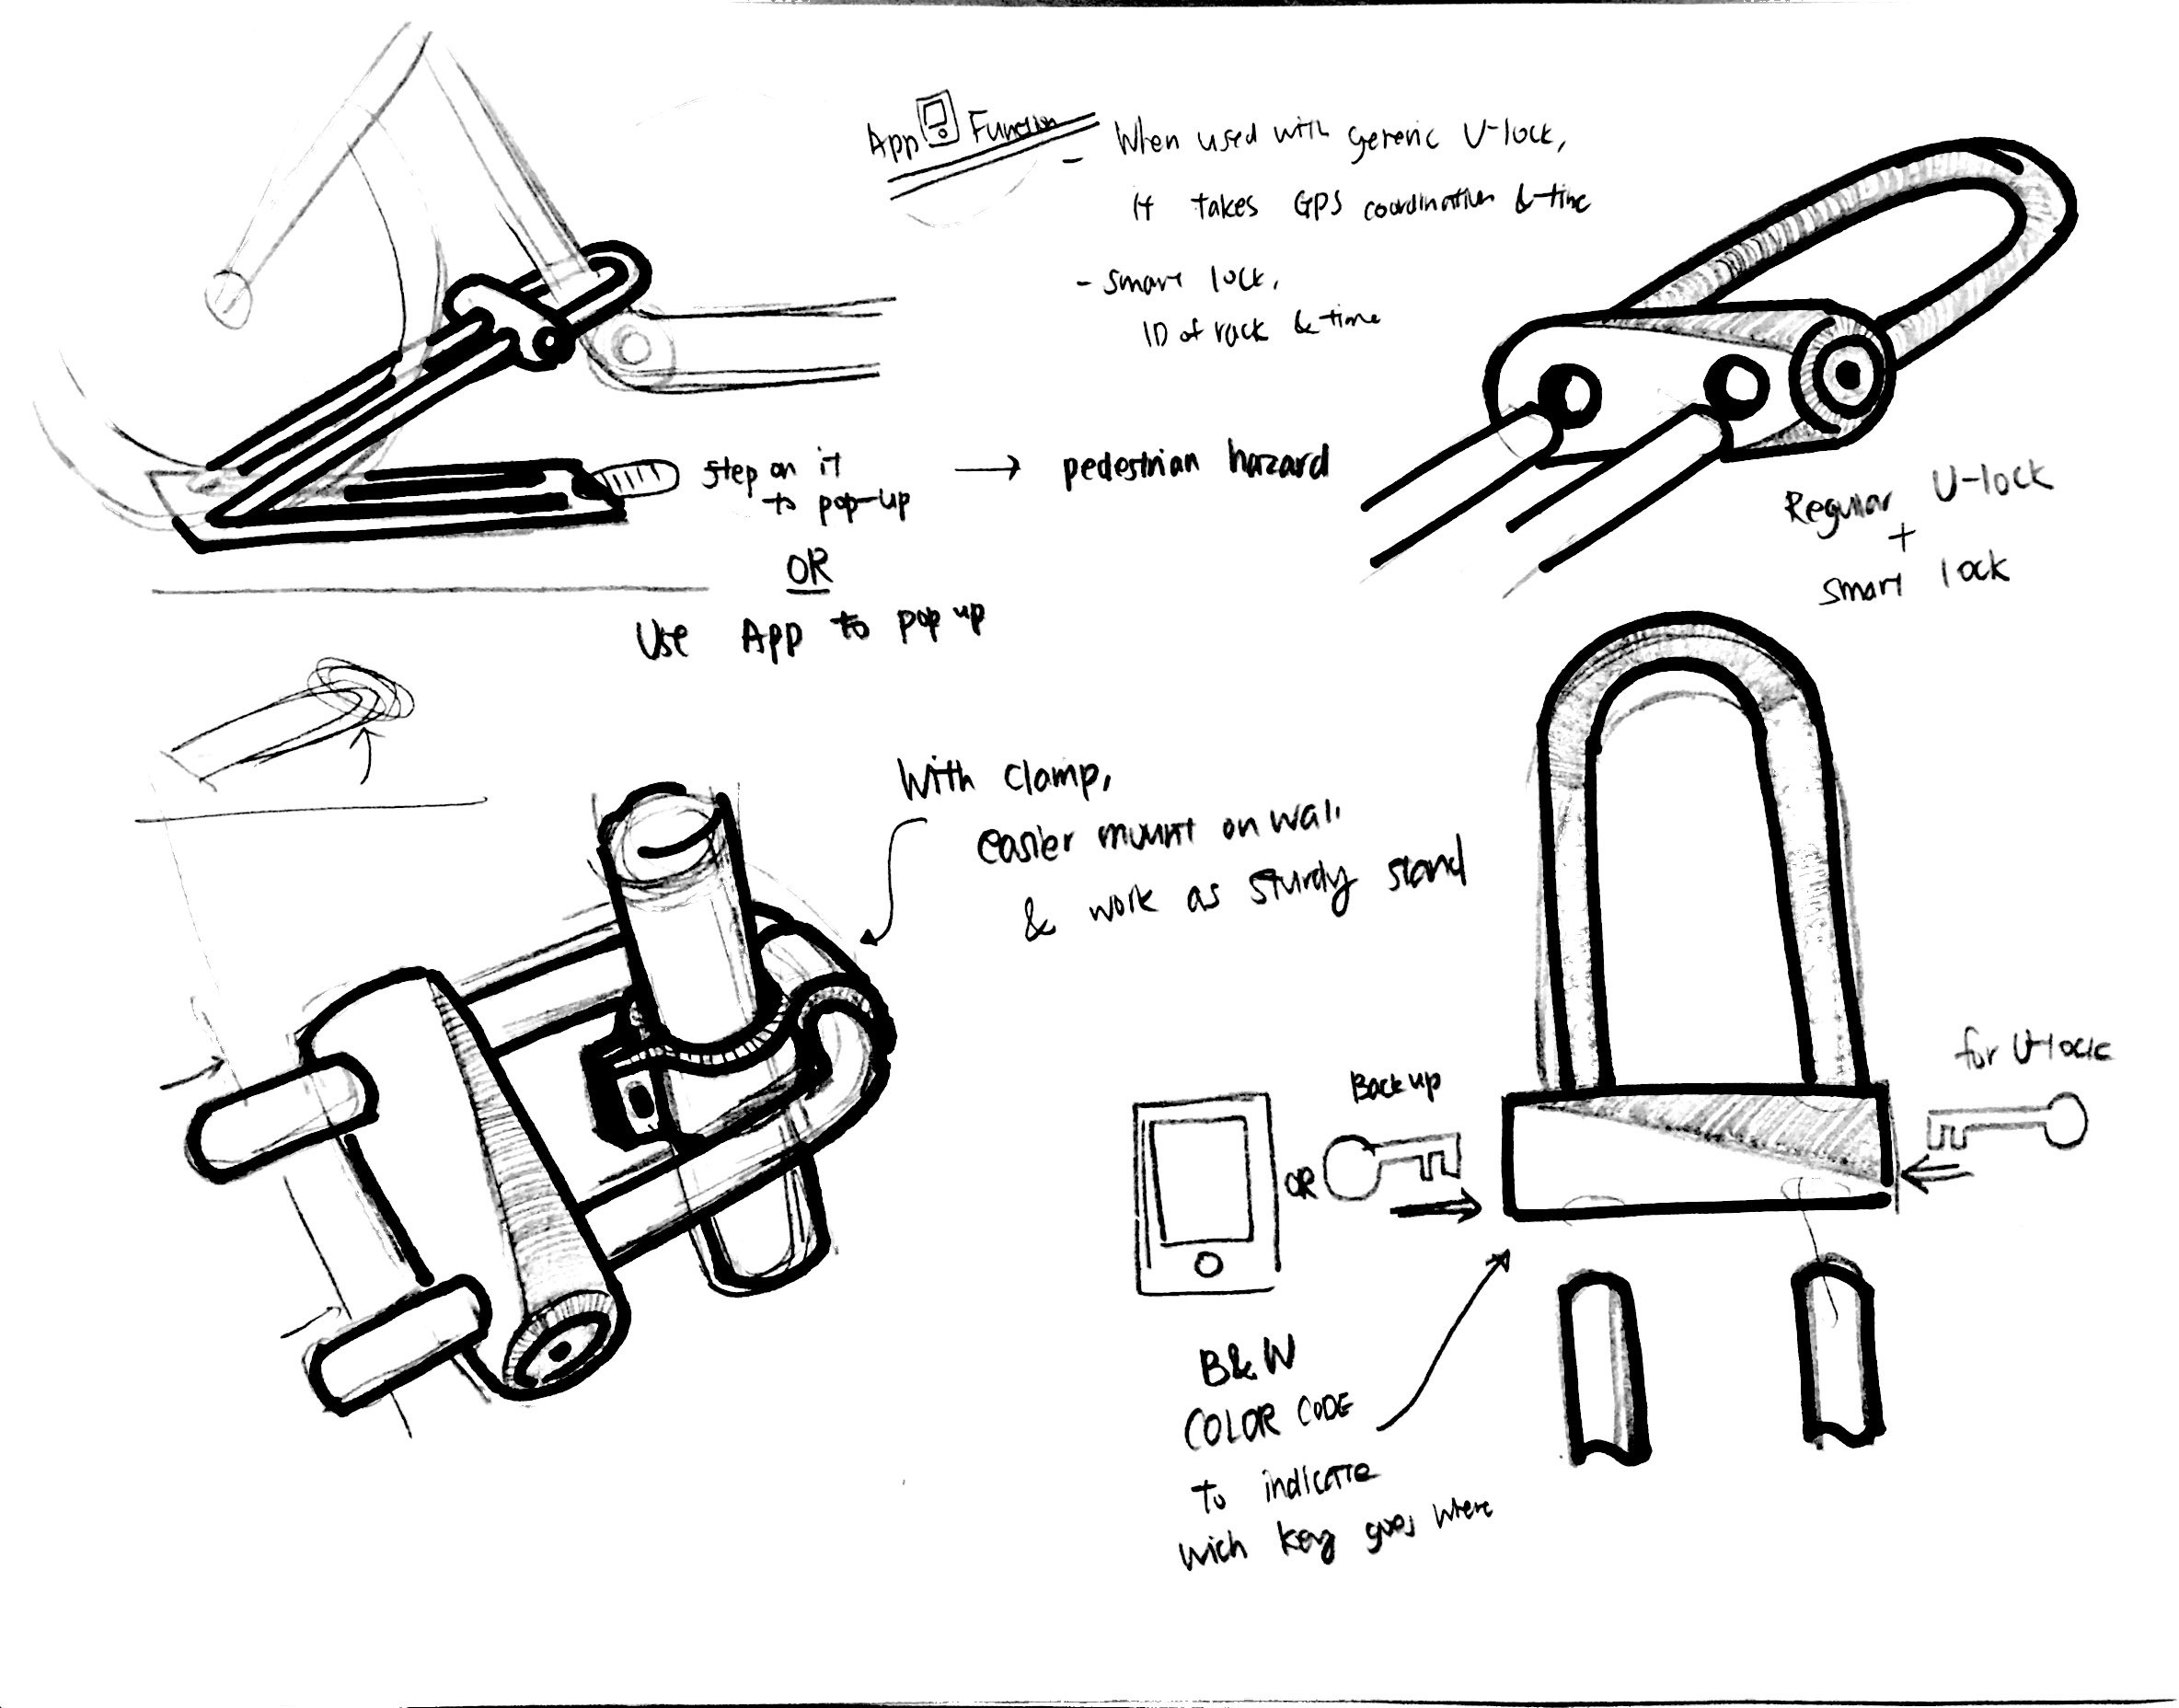 App Function
- When used with generic U-lock,
it takes GPS coordination & time
- smart lock,
ID of rack & time
step on it
to pop-up
→ pedestrian hazard
OR
Use App to pop up
Regular U-lock
+
smart lock
With clamp,
easier mount on wall
& work as sturdy stand
for U-lock
Back up
OR
B&W
COLOR CODE
to indicate
wich key goes where